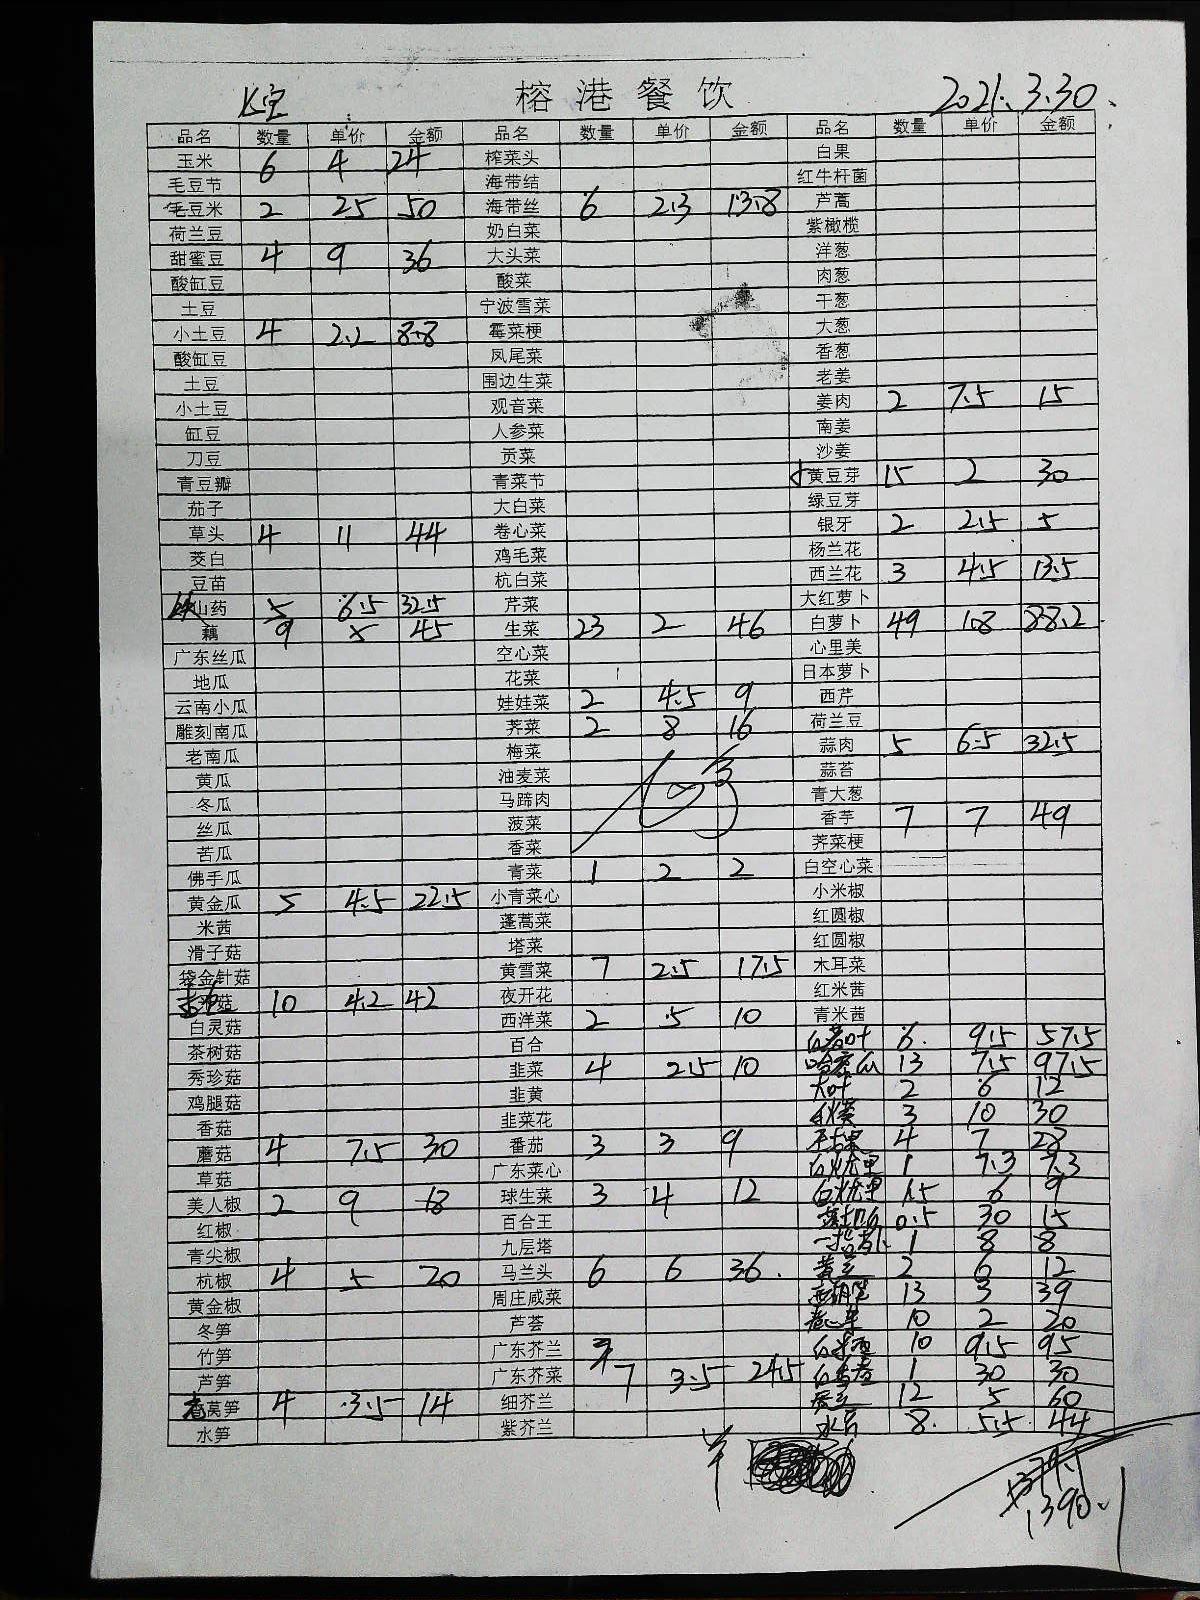 长宝 榕港餐饮 2021.3.30.
品名 数量 单价 金额 品名 数量 单价 金额 品名 数量 单价 金额
玉米 6 4 24 榨菜头 白果
毛豆节 海带结 红牛杆菌
毛豆米 2 25 50 海带丝 6 2.3 13.8 芦蒿
荷兰豆 奶白菜 紫橄榄
甜蜜豆 4 9 36 大头菜 洋葱
酸缸豆 酸菜 肉葱
土豆 宁波雪菜 干葱
小土豆 4 2.2 8.8 霉菜梗 大葱
酸缸豆 凤尾菜 香葱
土豆 围边生菜 老姜
小土豆 观音菜 姜肉 2 7.5 15
缸豆 人参菜 南姜
刀豆 贡菜 沙姜
青豆瓣 青菜节 黄豆芽 15 2 30
茄子 大白菜 绿豆芽
草头 4 11 44 卷心菜 银牙 2 2.5 5
茭白 鸡毛菜 杨兰花
豆苗 杭白菜 西兰花 3 4.5 13.5
铁山药 5 6.5 32.5 芹菜 大红萝卜
藕 9 5 45 生菜 23 2 46 白萝卜 49 1.8 88.2
广东丝瓜 空心菜 心里美
地瓜 花菜 日本萝卜
云南小瓜 娃娃菜 2 4.5 9 西芹
雕刻南瓜 荠菜 2 8 16 荷兰豆
老南瓜 梅菜 蒜肉 5 6.5 32.5
黄瓜 油麦菜 蒜苔
冬瓜 马蹄肉 青大葱
丝瓜 菠菜 香芋 7 7 49
苦瓜 香菜 荠菜梗
佛手瓜 青菜 1 2 2 白空心菜
黄金瓜 5 4.5 22.5 小青菜心 小米椒
米茜 蓬蒿菜 红圆椒
滑子菇 塔菜 红圆椒
袋金针菇 黄雪菜 7 2.5 17.5 木耳菜
菇 10 4.2 42 夜开花 红米茜
白灵菇 西洋菜 2 5 10 青米茜
茶树菇 百合 6 9.5 57.5
秀珍菇 韭菜 4 2.5 10 哈密瓜 13 7.5 97.5
鸡腿菇 韭黄 大叶 2 6 12
香菇 韭菜花 3 10 30
蘑菇 4 7.5 30 番茄 3 3 9 4 7 28
草菇 广东菜心 1 7.3 7.3
美人椒 2 9 18 球生菜 3 4 12 1.5 6 9
红椒 百合王 0.5 30 15
青尖椒 九层塔 1 8 8
杭椒 4 5 20 马兰头 6 6 36. 黄豆 2 6 12
黄金椒 周庄咸菜 13 3 39
冬笋 芦荟 10 2 20
竹笋 广东芥兰 10 9.5 95
芦笋 广东芥菜 7 3.5 24.5 1 30 30
莴笋 4 3.5 14 细芥兰 12 5 60
水笋 紫芥兰 8 5.5 44
1390.1